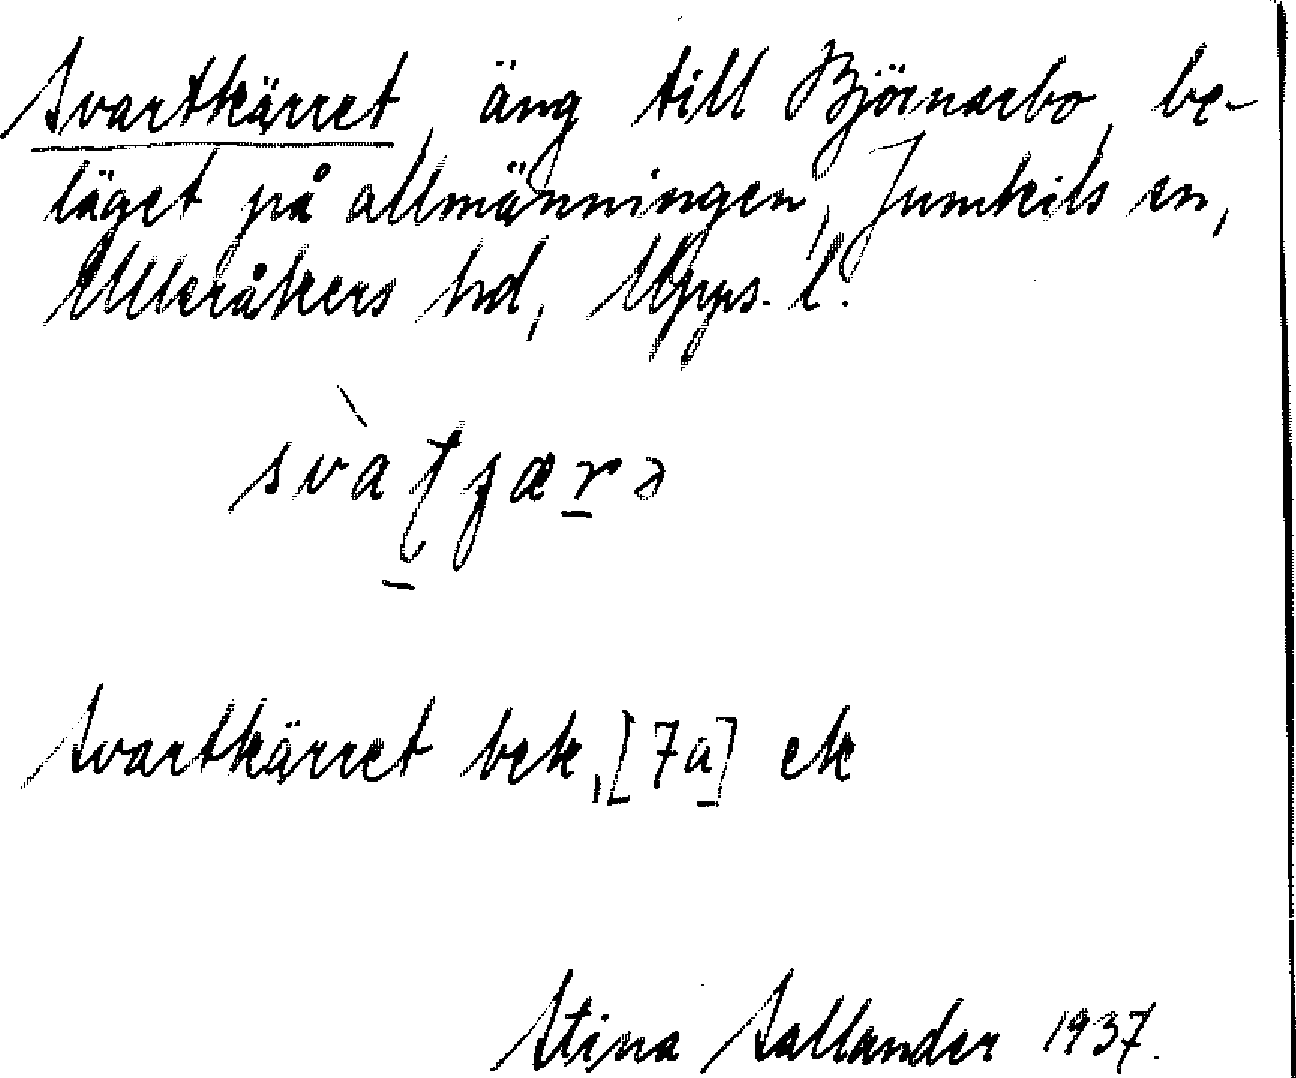 Svartkärret, äng till Björnarbo, be-
läget på allmänningen, Jumkils sn,
Ulleråkers hd, Upps. l.
Svartkärret bek, [7a] ek
Stina Sallander 1937.